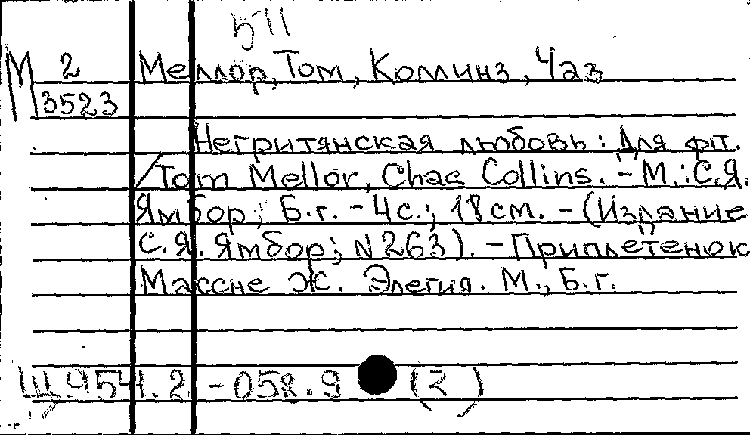 511
М 2 Меллор, Том, Коллинз, Чаз
3523
Негритянская любовь: Для фп.
/Tom Mellor, Chas Collins. - М.: С.Я.
Ямбор; Б.г. - 4с.; 18см. - (Издание
С.Я. Ямбор; N263). - Приплетенок
Массне Ж. Элегия. М., Б.г.
Щ.954.2.-058.9 (2)